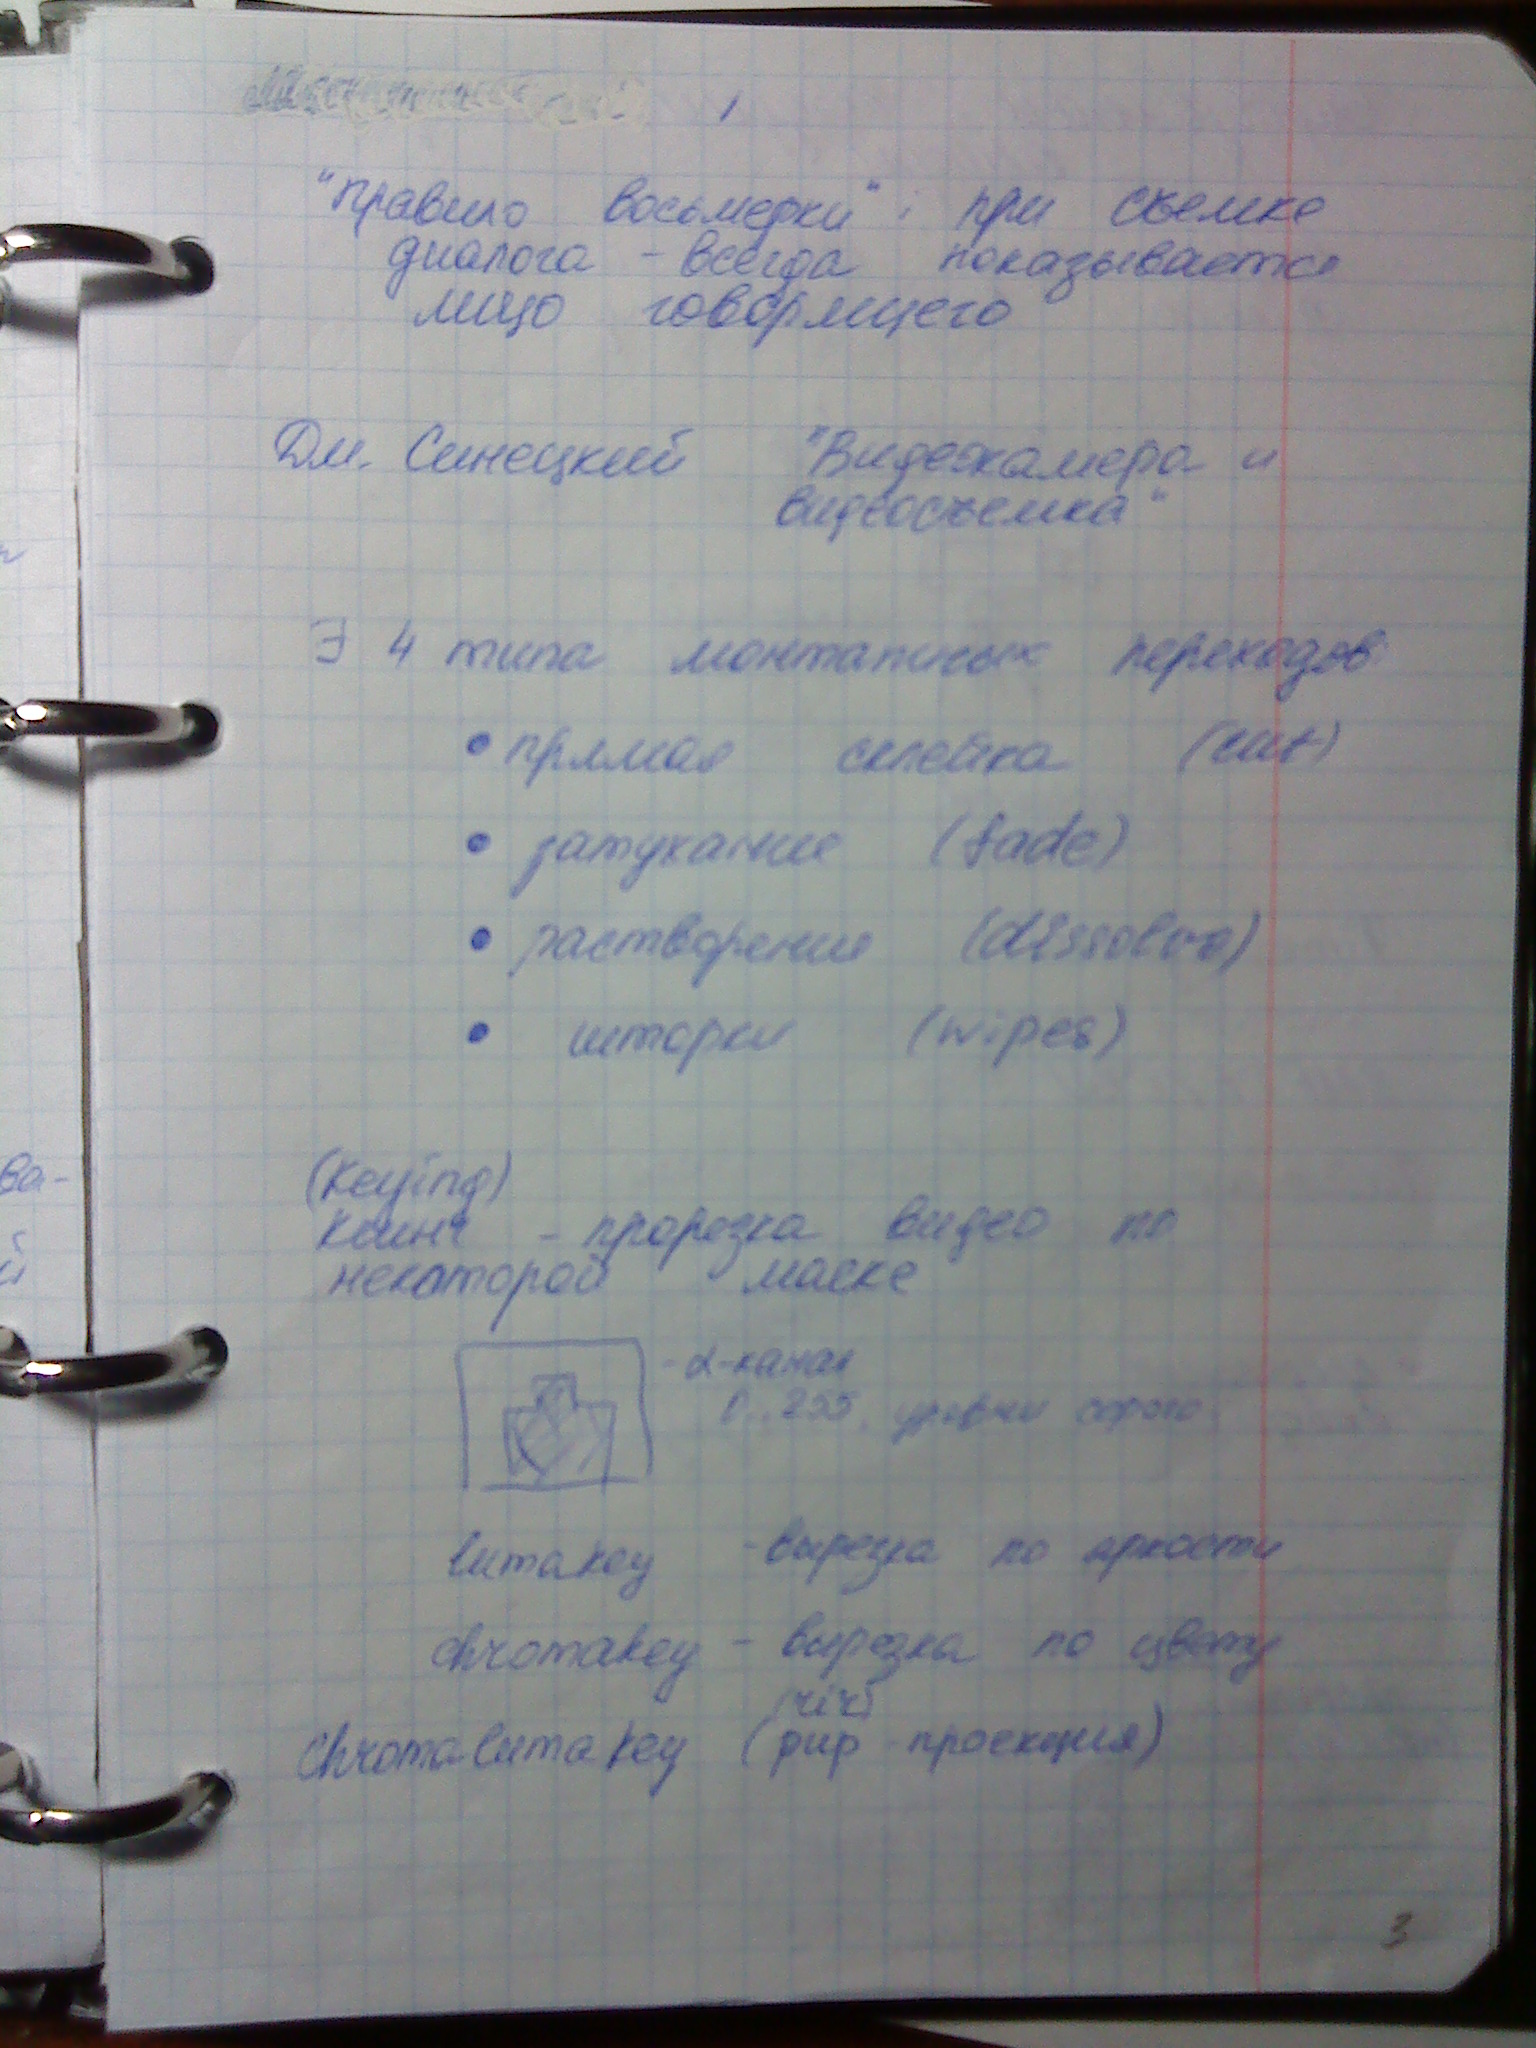 "Правило восьмерки": при съемке
диалога - всегда показывается
лицо говорящего
Дм. Синецкий "Видеокамера и
видеосъемка"
∃ 4 типа монтажных переходов
• прямая склейка (cut)
• затухание (fade)
• растворение (dissolve)
• шторки (wipes)
(Keying)
Кеинг - прорезка видео по
некоторой маске
- α-канал
0..255, уровни серого
lumakey - вырезка по яркости
chromakey - вырезка по цвету
chromalumakey (рир проекция)
3